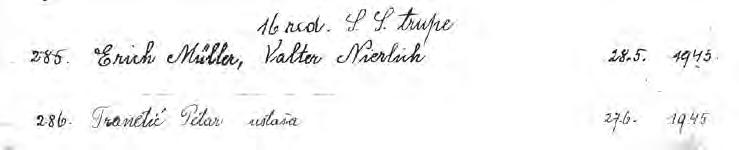 16 red. S. S. trupe
285. Erich Müller, Valter Nierlich 28.5. 1945.
286. Franetić Petar ustaša 27.6. 1945